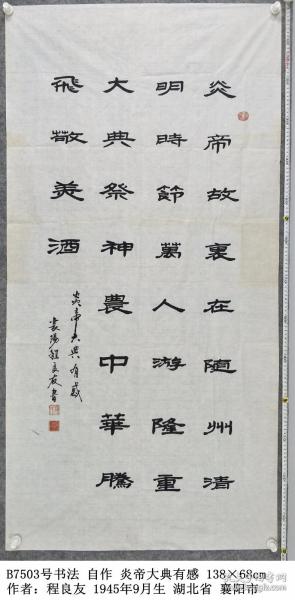 炎帝故裏在随州清
明時節萬人游隆重
大典祭神農中華騰
飛敬美酒
炎帝大典有感
襄陽程良友書
B7503号书法 自作 炎帝大典有感 138×68cm
作者：程良友 1945年9月生 湖北省 襄阳市